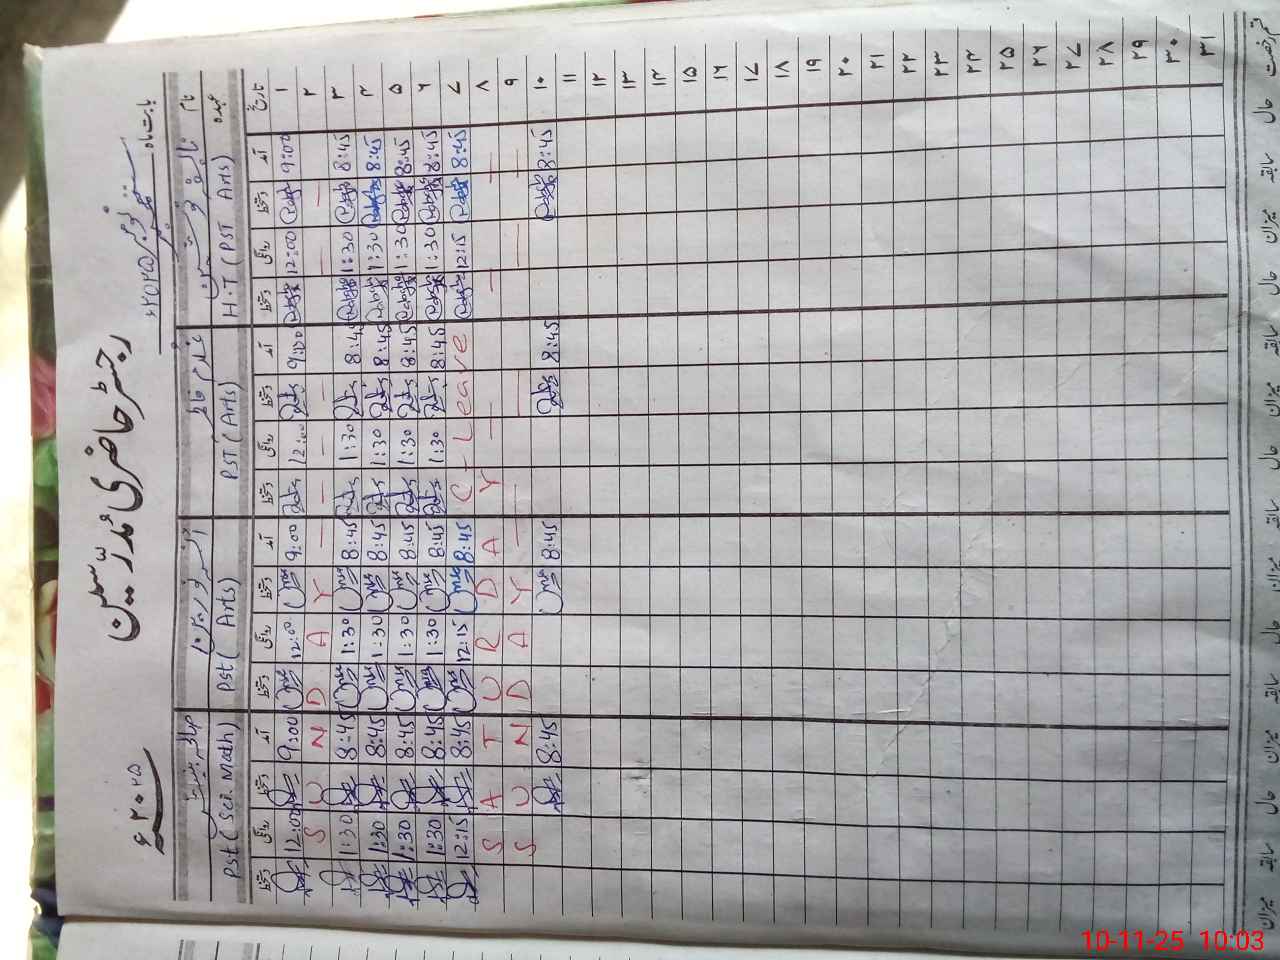 رجسٹر حاضری مدرسین
بابت ماہ نومبر ۲۰۲۵ء
۲۰۲۵ء
نام
عہدہ H.T (PST Arts) PST (Arts) Pst (Arts) Pst (Sci. Math)
تاریخ آمد دستخط روانگی دستخط آمد دستخط روانگی دستخط آمد دستخط روانگی دستخط آمد دستخط روانگی دستخط
۱ 9:00 12:00 9:00 12:00 9:00 12:00 9:00 12:00
۲ — — — — — — — Y A D N U S
۳ 8:45 1:30 8:45 1:30 8:45 1:30 8:45 1:30
۴ 8:45 1:30 8:45 1:30 8:45 1:30 8:45 1:30
۵ 8:45 1:30 8:45 1:30 8:45 1:30 8:45 1:30
۶ 8:45 1:30 8:45 1:30 8:45 1:30 8:45 1:30
۷ 8:45 12:15 C - Leave 8:45 12:15 8:45 12:15
۸ — — — — — — Y A D R U T A S
۹ — — — — — — — Y A D N U S
۱۰ 8:45 8:45 8:45 8:45
۱۱
۱۲
۱۳
۱۴
۱۵
۱۶
۱۷
۱۸
۱۹
۲۰
۲۱
۲۲
۲۳
۲۴
۲۵
۲۶
۲۷
۲۸
۲۹
۳۰
۳۱
قسم رخصت حال سابقہ میزان حال سابقہ میزان حال سابقہ میزان حال سابقہ میزان
10-11-25 10:03